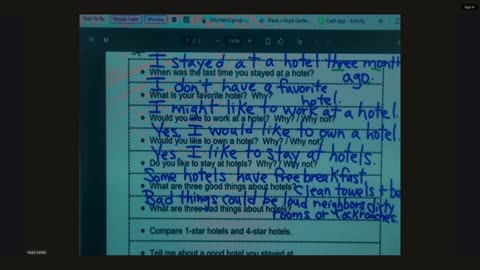 Sign in
First To Be Maybe Later Monday VolunteerSignup Wave • Hope Center Cash App - Activity
1 / 100%
I stayed at a hotel three month
• When was the last time you stayed at a hotel? ago.
I don't have a favorite
• What is your favorite hotel? Why? hotel.
I might like to work at a hotel.
• Would you like to work at a hotel? Why? / Why not?
Yes, I would like to own a hotel.
• Would you like to own a hotel? Why? / Why not?
Yes, I like to stay at hotels.
• Do you like to stay at hotels? Why? / Why not?
Some hotels have free breakfast.
• What are three good things about hotels? Clean towels +
Bad things could be loud neighbors dirty
• What are three bad things about hotels? rooms or cockroaches.
• Compare 1-star hotels and 4-star hotels.
• Tell me about a good hotel you stayed at.
Hope Center